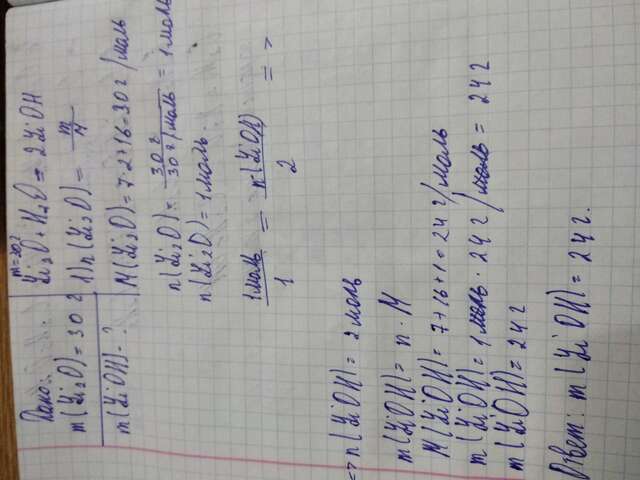 Дано:
m(Li₂O) = 30 г
m(LiOH) - ?
m=30г
Li₂O + H₂O = 2LiOH
1) n(Li₂O) = m/M
M(Li₂O) = 7·2+16=30 г/моль
n(Li₂O) = 30 г/30 г/моль = 1 моль
n(Li₂O) = 1 моль
1 моль/1 = n(LiOH)/2 =>
=> n(LiOH) = 2 моль
m(LiOH) = n · M
M(LiOH) = 7+16+1 = 24 г/моль
m(LiOH) = 1 моль · 24 г/моль = 24 г
m(LiOH) = 24 г
Ответ: m(LiOH) = 24 г.